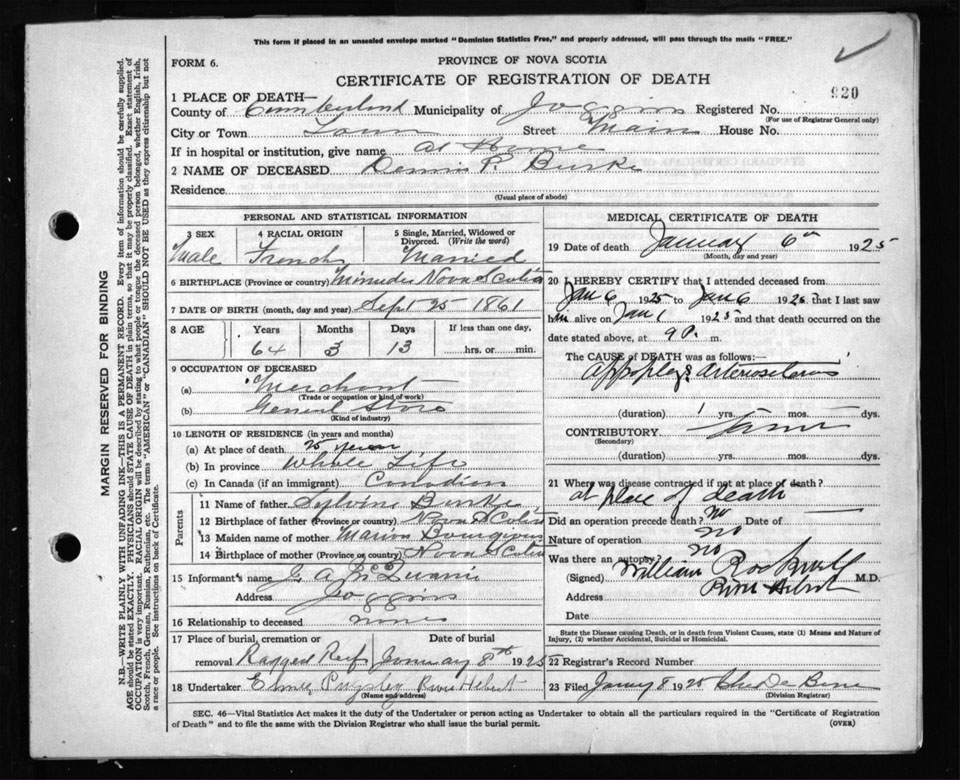 This form if placed in an unsealed envelope marked "Dominion Statistics Free," and properly addressed, will pass through the mails "FREE."
FORM 6.
PROVINCE OF NOVA SCOTIA
CERTIFICATE OF REGISTRATION OF DEATH
920
1 PLACE OF DEATH—
County of Cumberland Municipality of Joggins Registered No.
(For use of Registrar General only)
City or Town Town Street Main House No.
If in hospital or institution, give name At Home
2 NAME OF DECEASED Dennis P. Burke
Residence
(Usual place of abode)
PERSONAL AND STATISTICAL INFORMATION
3 SEX 4 RACIAL ORIGIN 5 Single, Married, Widowed or Divorced. (Write the word)
Male French Married
6 BIRTHPLACE (Province or country) Minudie Nova Scotia
7 DATE OF BIRTH (month, day and year) Sept 25 1861
8 AGE Years Months Days If less than one day,
64 3 13 hrs. or min.
9 OCCUPATION OF DECEASED
(a) Merchant
(Trade or occupation or kind of work)
(b) General Store
(Kind of industry)
10 LENGTH OF RESIDENCE (in years and months)
(a) At place of death 25 years
(b) In province Whole Life
(c) In Canada (if an immigrant) Canadian
Parents
11 Name of father Sylvine Burke
12 Birthplace of father (Province or country) Nova Scotia
13 Maiden name of mother Marion Bourgeois
14 Birthplace of mother (Province or country) Nova Scotia
15 Informant's name J A
Address Joggins
16 Relationship to deceased none
17 Place of burial, cremation or removal Ragged Reef
Date of burial January 8th 1925
18 Undertaker Elmer Pugsley River Hebert
(Name and address)
MEDICAL CERTIFICATE OF DEATH
19 Date of death January 6th 1925
(Month, day and year)
20 I HEREBY CERTIFY that I attended deceased from
Jan 6 1925 to Jan 6 1925 that I last saw
him alive on Jan 1 1925 and that death occurred on the
date stated above, at 9 P. m.
The CAUSE of DEATH was as follows:
Appoplexy Arteriosclerosis
(duration) 1 yrs. mos. dys.
CONTRIBUTORY
(Secondary)
(duration) yrs. mos. dys.
21 Where was disease contracted if not at place of death?
at place of death
Did an operation precede death? no Date of
Nature of operation no
Was there an autopsy? no
(Signed) William Rockwell M.D.
Address River Hebert
Date
State the Disease causing Death, or in death from Violent Causes, state (1) Means and Nature of Injury, (2) whether Accidental, Suicidal or Homicidal.
22 Registrar's Record Number
23 Filed Jany 8 1925
(Division Registrar)
SEC. 46—Vital Statistics Act makes it the duty of the Undertaker or person acting as Undertaker to obtain all the particulars required in the "Certificate of Registration
of Death" and to file the same with the Division Registrar who shall issue the burial permit.
(OVER)
MARGIN RESERVED FOR BINDING
N.B.—WRITE PLAINLY WITH UNFADING INK—THIS IS A PERMANENT RECORD. Every item of information should be carefully supplied.
AGE should be stated EXACTLY. PHYSICIANS should STATE CAUSE OF DEATH in plain terms, so that it may be properly classified. Exact statement of
OCCUPATION is very important. RACIAL ORIGIN will be described by stating to what people or tongue the deceased person belonged, whether English, Irish,
Scotch, French, German, Russian, Ruthenian, etc. The terms "AMERICAN" or "CANADIAN" SHOULD NOT BE USED as they express citizenship but not
a race or people. See instructions on back of Certificate.